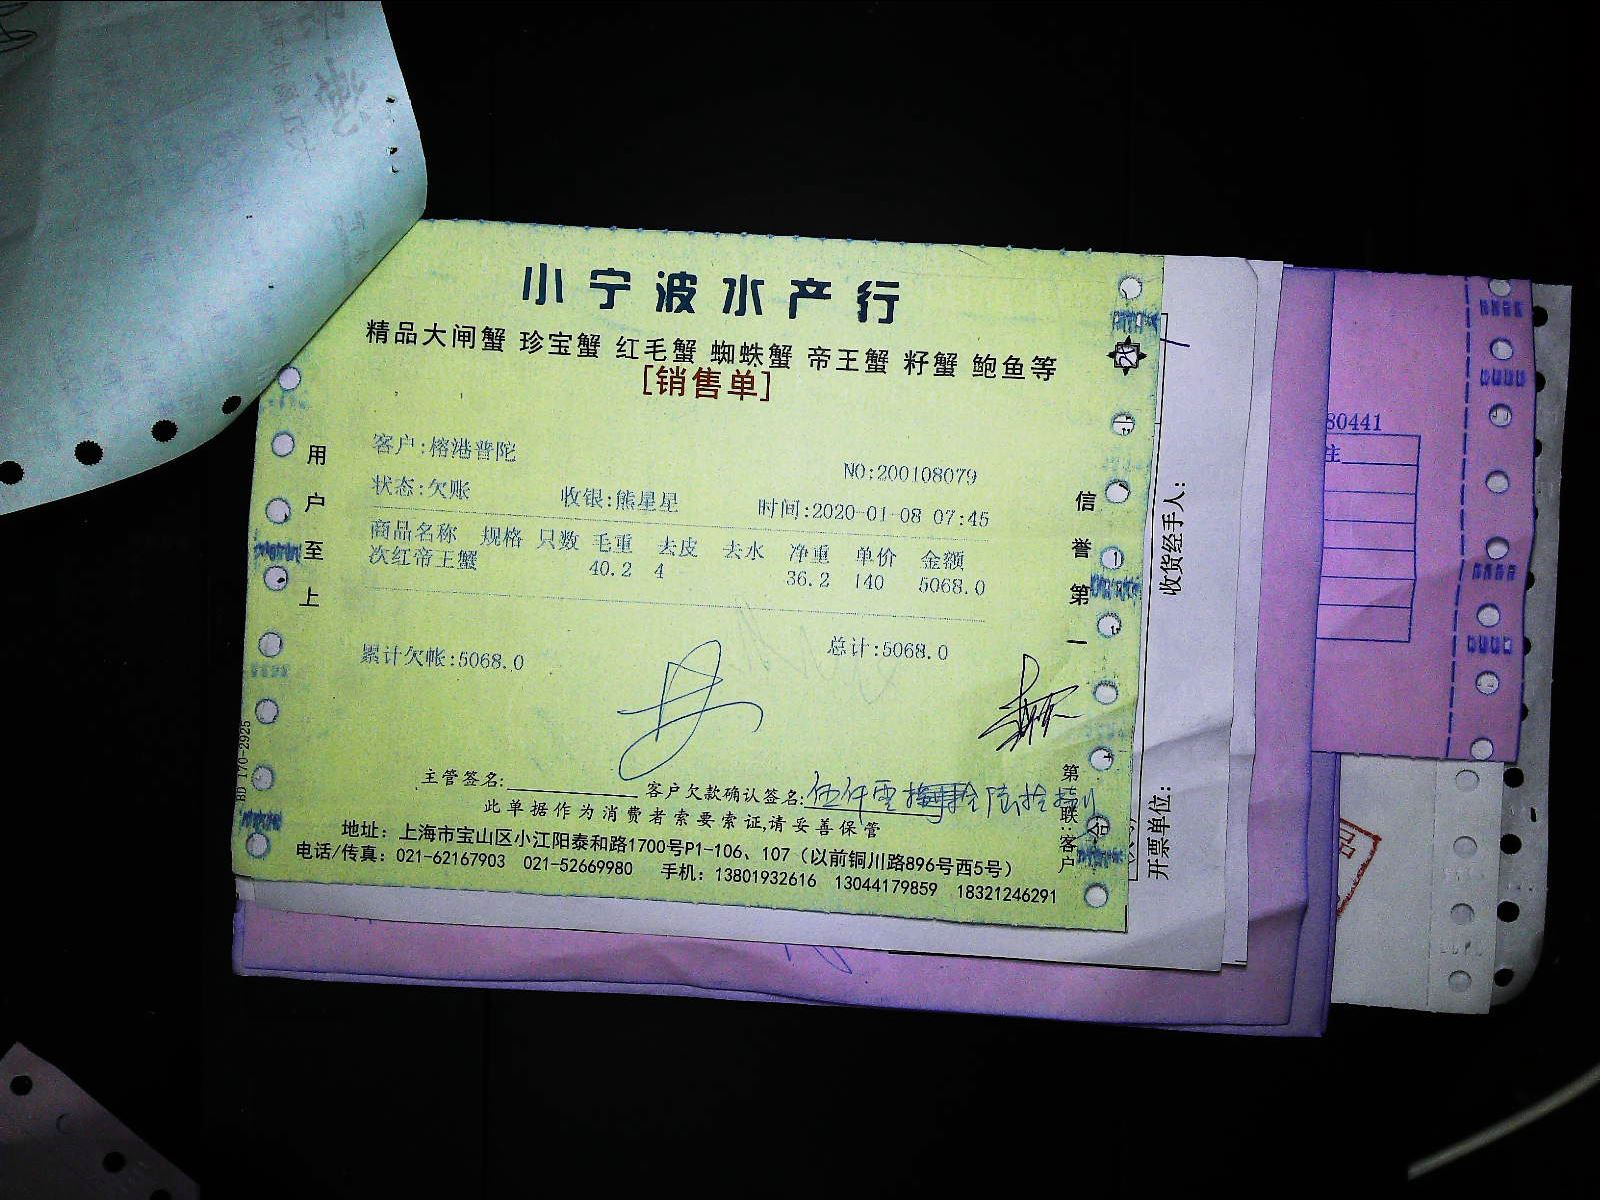 小宁波水产行
精品大闸蟹 珍宝蟹 红毛蟹 蜘蛛蟹 帝王蟹 籽蟹 鲍鱼等
[销售单]
客户:榕港普陀
NO:200108079
状态:欠账 收银:熊星星 时间:2020-01-08 07:45
商品名称 规格 只数 毛重 去皮 去水 净重 单价 金额
次红帝王蟹 40.2 4 36.2 140 5068.0
累计欠帐:5068.0 总计:5068.0
主管签名: 客户欠款确认签名:伍仟零
此单据作为消费者索要索证,请妥善保管
地址：上海市宝山区小江阳泰和路1700号P1-106、107（以前铜川路896号西5号）
电话/传真：021-62167903 021-52669980 手机：13801932616 13044179859 18321246291
用户至上
信誉第一
第 联:客户
BD 170-2925
收货经手人：
开票单位：
80441